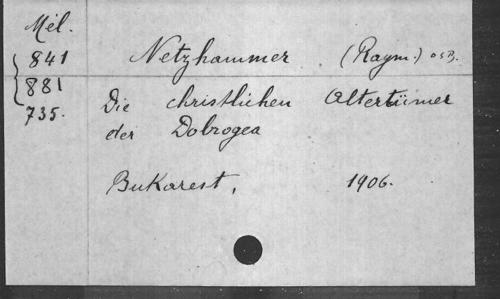 Mél.
841 Netzhammer (Raym.) OSB.
881
735. Die christlichen Altertümer
der Dobrogea
Bukarest, 1906.